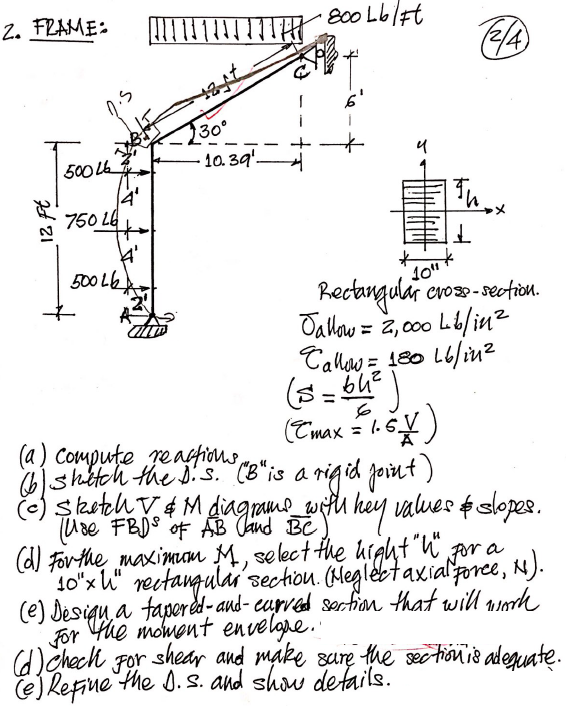 2. FRAME:
800 Lb/Ft
2/4
D.S
12 ft
C
6'
B
30°
10.39'
2'
500 Lb
4'
12 Ft
750 Lb
4'
500 Lb
2'
A
y
h
x
10"
Rectangular cross-section.
σallow = 2,000 Lb/in²
τallow = 180 Lb/in²
(S = bh²/6)
(τmax = 1.5 V/A)
(a) Compute reactions
(b) Sketch the D.S. ("B" is a rigid joint)
(c) Sketch V & M diagrams with key values & slopes.
(Use FBDs of AB and BC)
(d) For the maximum M, select the hight "h" for a
10" x h" rectangular section. (Neglect axial force, N).
(e) Design a tapered-and-curved section that will work
for the moment envelope.
(d) Check for shear and make sure the section is adequate.
(e) Refine the D.S. and show details.